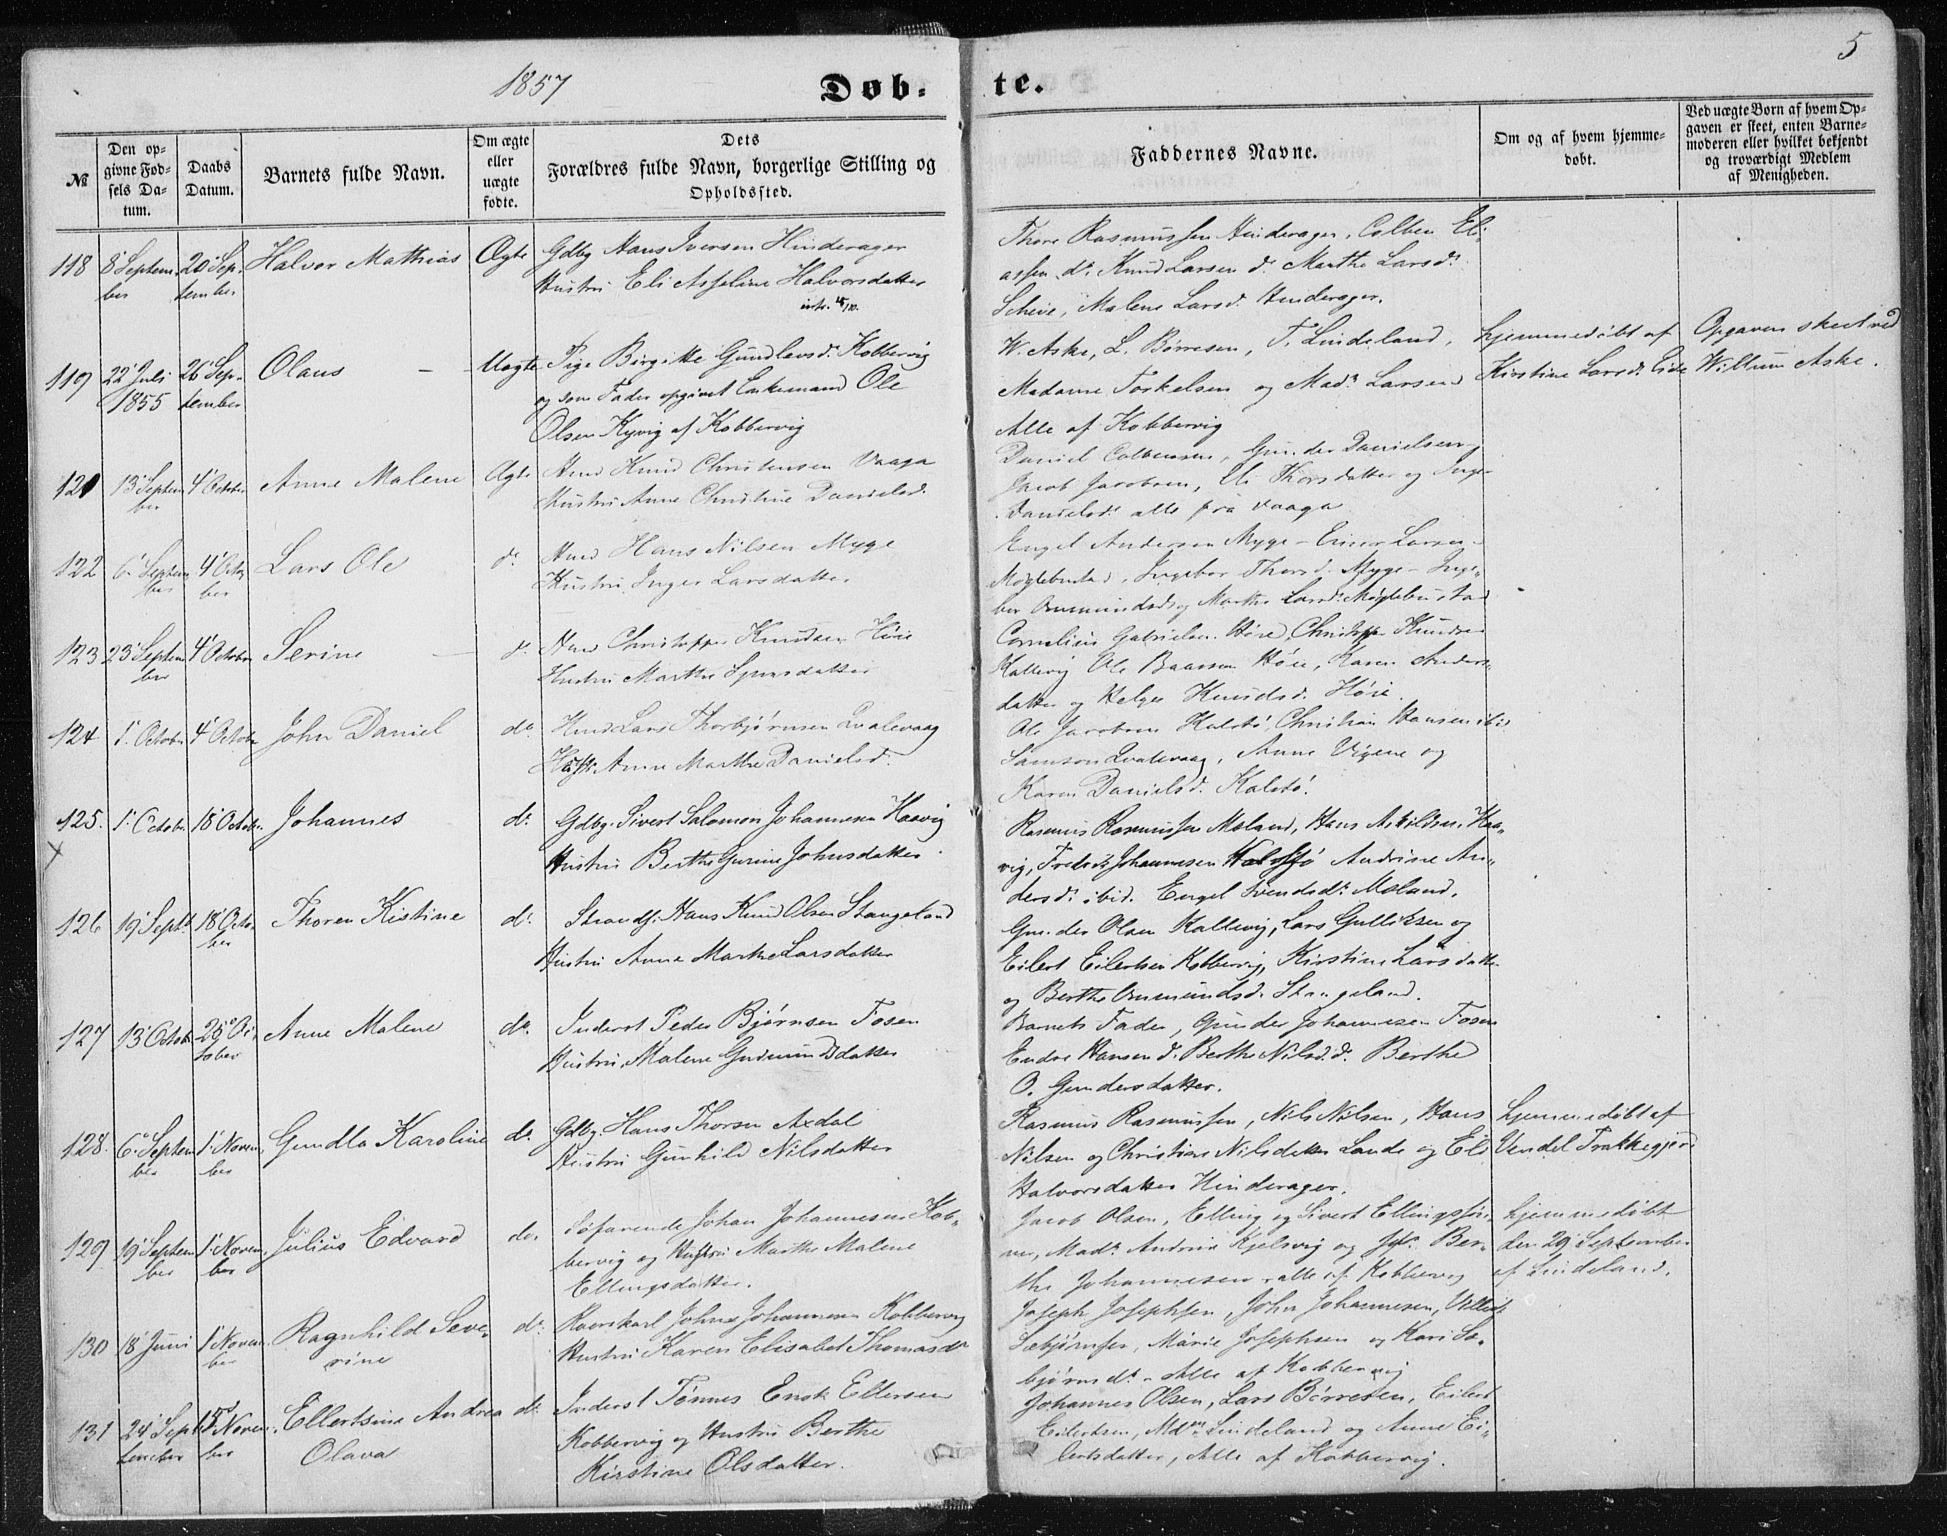 1857
Døb-
te.
5
№
Den op-
givne Fød-
sels Da-
tum.
Daabs
Datum.
Barnets fulde Navn.
Om ægte
eller
uægte
fødte.
Dets
Forældres fulde Navn, borgerlige Stilling og
Opholdssted.
Faddernes Navne.
Om og af hvem hjemme-
døbt.
Ved uægte Børn af hvem Op-
gaven er skeet, enten Barne-
moderen eller hvilket bekjendt
og troværdigt Medlem
af Menigheden.
118 8 Septem- 20 Sep- Halvor Mathias Ægte Gdbg Hans Iversen Hinderager
ber tember Hustru Eli Asseline Halvorsdatter
Thore Rasmussen Hinderager, Colben Eli-
assen do Knud Larsen do Marthe Larsd.
Scheie, Malene Larsd. Hinderager.
119 22 Juli 26 Sep- Olaus Uægte Pige Birgitte Gundlevsd. Kobbervig
1855 tember og som Fader opgivet Enkemand Ole
Olsen Kyvig af Kobbervig
W. Aske, L. Børresen, T. Lindeland,
Madame Torkelsen og Made Larsen
Alle af Kobbervig
hjemmedøbt af
Kirstine Larsd. Eide
Opgaven skeet ved
Willum Aske.
121 13 Septem- 4 October Anne Malene Ægte Hmd Knud Christensen Vaaga
ber Hustru Anne Christine Danielsd.
Daniel Colbensen, Gunder Danielsen,
Jacob Jacobsen, Eli Thorsdatter og Inge-
Danielsdr alle fra Vaaga
122 6 Septem- 4 Octo- Lars Ole do Hmd Hans Nilsen Myge
ber ber Hustru Inger Larsdatter.
Engel Andersen Myge - Einar Larsen
Møglebustad, Ingebor Thorsd. Myge - Inge-
bor Ommundsd. og Marthe Larsd. Møglebustad
123 23 Septem- 4 October Serine do Hmd Christopher Knudsen Høie
ber Hustru Marthe Larsdatter
Cornelius Gabrielsen Høie, Christopher Knudsen
Kallevig Ole Baarsen Høie, Karen Anders-
datter og Helge Knudsd. Høie.
124 1 October 4 October John Daniel do Hmd Lars Thorbjørnsen Qvalevaag
Hustr. Anne Marthe Danielsd.
Ole Jacobsen Kalstø, Christian Hansen ibid
Samson Qvalevaag, Anne Vigene og
Karen Danielsd. Kalstø.
125. 1 October 18 October Johannes do Gdbg. Sivert Salomon Johannesen Haavig
Hustru Berthe Gurine Johnsdatter.
Rasmus Rasmussen Meland, Hans Askildsen Haa-
vig, Fredrik Johannesen Kalstø Andrine An-
dersdr ibid. Engel Svendsdr Meland.
126 19 Septb 18 Octo- Thoren Kistine do Strands. Hans Knud Olsen Stangeland
ber Hustru Anne Marthe Larsdatter
Gunder Olsen Kallevig, Lars Gulliksen og
Eilert Eilertsen Kobbervig, Kirstine Larsdatter
og Berthe Ommundsd. Stangeland.
127 13 October 25 Oc- Anne Malene do Inderst Peder Bjørnsen Fosen
tober Hustru Malene Gudmundsdatter
Barnets Fader, Gunder Johannesen Fosen
Endre Hansen do Berthe Nilsd. do Berthe
O. Gundersdatter.
128. 6 Septem- 1 Novem- Gundla Karoline do Gdbg. Hans Thorsen Axdal
ber ber Hustru Gunhild Nilsdatter
Rasmus Rasmussen, Nils Nilsen, Hans
Nilsen og Christine Nilsdatter Lande og Eli
Halvorsdatter Hinderager.
hjemmedøbt af
Vendel Trakkegjerd
129 19 Septem- 1 Novem- Julius Edvard do Søfarende Johan Johannesen Kob-
ber ber bervig og Hustru Marthe Malene
Ellingsdatter.
Jacob Olsen, Elling og Sivert Ellingssøn-
ner, Made Andrine Kjelsvig og Jfr. Ber-
the Johannesen, alle af Kobbervig
hjemmedøbt
den 29 September
af Lindeland.
130 18 Juni 1 Novem- Ragnhild Seve- do Roerskarl Johns Johannesen Kobbervig
ber rine Hustru Karen Elisabet Thomasdr
Joseph Josephsen, John Johannesen, Villads
Sebjørnsen, Marie Josephsen og Kari Se-
bjørnsdr - Alle af Kobbervig
131 24 Sept- 15 Novem- Ellertsine Andrea do Inderst Tønnes Enok Ellersen
tember ber Olava Kobbervig og Hustru Berthe
Kirstine Olsdatter.
Johannes Olsen, Lars Børresen, Eilert
Eilertsen, Mdm Lindeland og Anne Ei-
lertsdatter, Alle af Kobbervig.